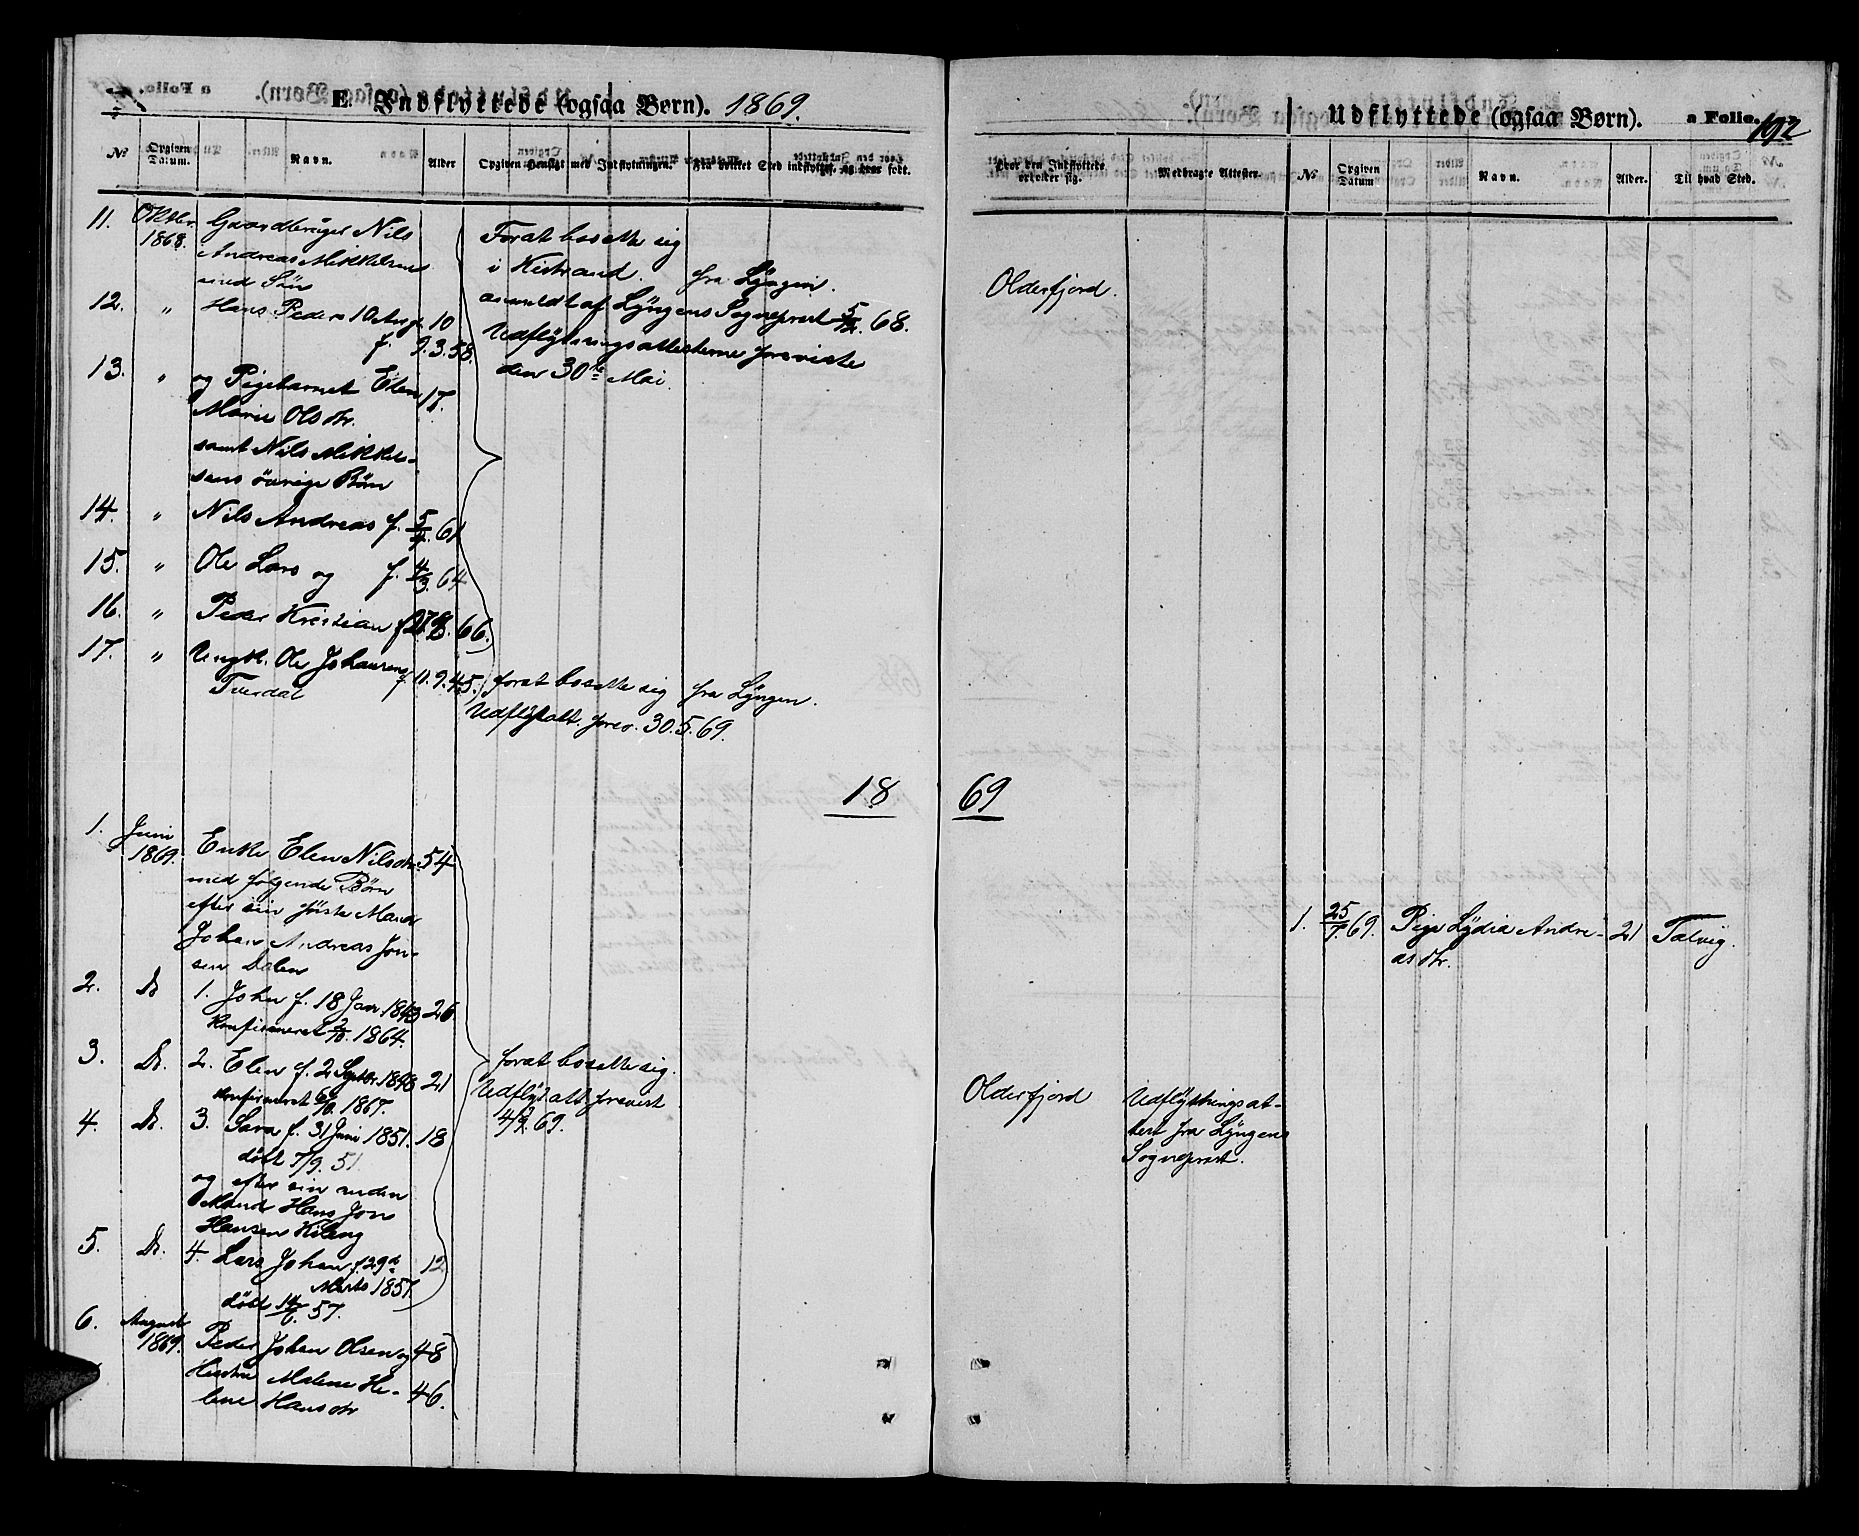 E. Indflyttede (ogsaa Børn). 1869.
№ Opgiven Datum. Navn. Alder Opgiven Hensigt med Indflytningen. Fra hvilket Sted indflyttet, og hvor født.
11. Oktbr. 1868. Gaardbruger Nils
Andreas Mikkelsen
med Søn
12. " Hans Peder 10 Aar gl. 10
f. 9.3.58.
13. " og Pigebarnet Elen 17.
Marie Olsdtr.
samt Nils Mikkel-
sens øvrige Børn
14. " Nils Andreas f. 5/7. 61
15. " Ole Lars og f. 4/3. 64
16. " Peder Kristian f 27/8. 66.
17. " Ungk. Ole Johansens f. 11.9.45.
Tverdal
Forat bosætte sig
i Kistrand. fra Lyngen.
anmeldt af Lyngens Sognepræst 68.
Udflytningsattesterne foreviste
den 30te Mai.
forat bosætte sig fra Lyngen.
Udflytatt. forev. 30.5.69.
18
1. Juni 1869. Enke Elen Nilsdtr. 54
med følgende Børn
efter sin første Mand
Johan Andreas Jon-
sen Dalen
2. D. 1. John f. 18 Jan 1843 26
konfirmeret 1864.
3. D. 2. Elen f. 2 Septbr. 1848 21
konfirmeret 1867.
4. D. 3. Sara f. 31 Juni 1851. 18
døbt 7/9. 51.
og efter sin anden
Mand Hans Jon
Hansen Kileng
5. D. 4. Lars Johan f. 29d 12
Marts 1857.
døbt 57.
6. August 1869. Peder Johan Olsen og 48
Hustru Malene He- 46.
lene Hansdtr
forat bosætte sig.
Udflytatt forevist
69.
Udflyttede (ogsaa Børn). a Folio. 192
Hvor den Indflyttede opholder sig. Medbragte Attester. № Opgiven Datum Navn. Alder. Til hvad Sted.
Olderfjord.
69
1. 25/7. 69. Pige Lydia Andre- 21 Talvig.
as dtr.
Olderfjord Udflytningsat-
test fra Lyngens
Sognepræst.